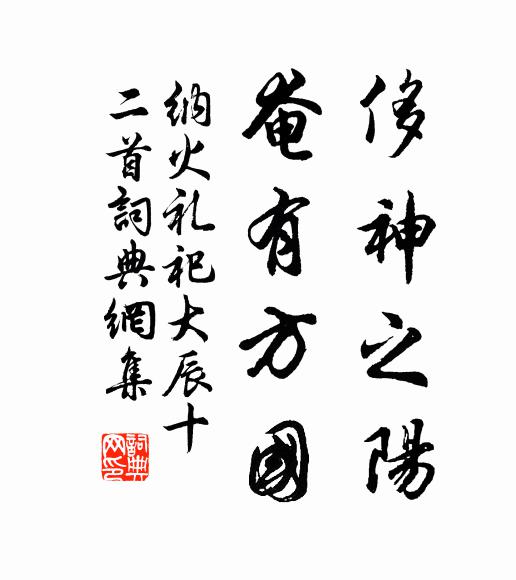 侈神之陽
奄有方國
納火礼祀大辰十
二首詞典網集
詞典网印